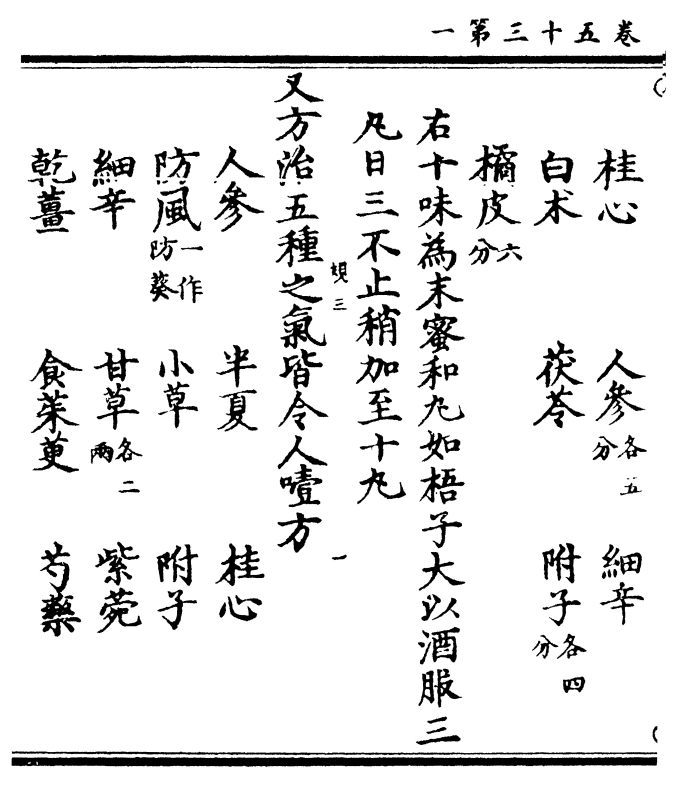 卷五十三第一
桂心 人參各五分 細辛
白术 茯苓 附子各四分
橘皮六分
右十味為末蜜和丸如梧子大以酒服三
丸日三不止稍加至十丸
三 一
又方治五種之氣皆令人噎方
人參 半夏 桂心
防風一作防葵 小草 附子
細辛 甘草各二兩 紫菀
乾薑 食茱萸 芍藥